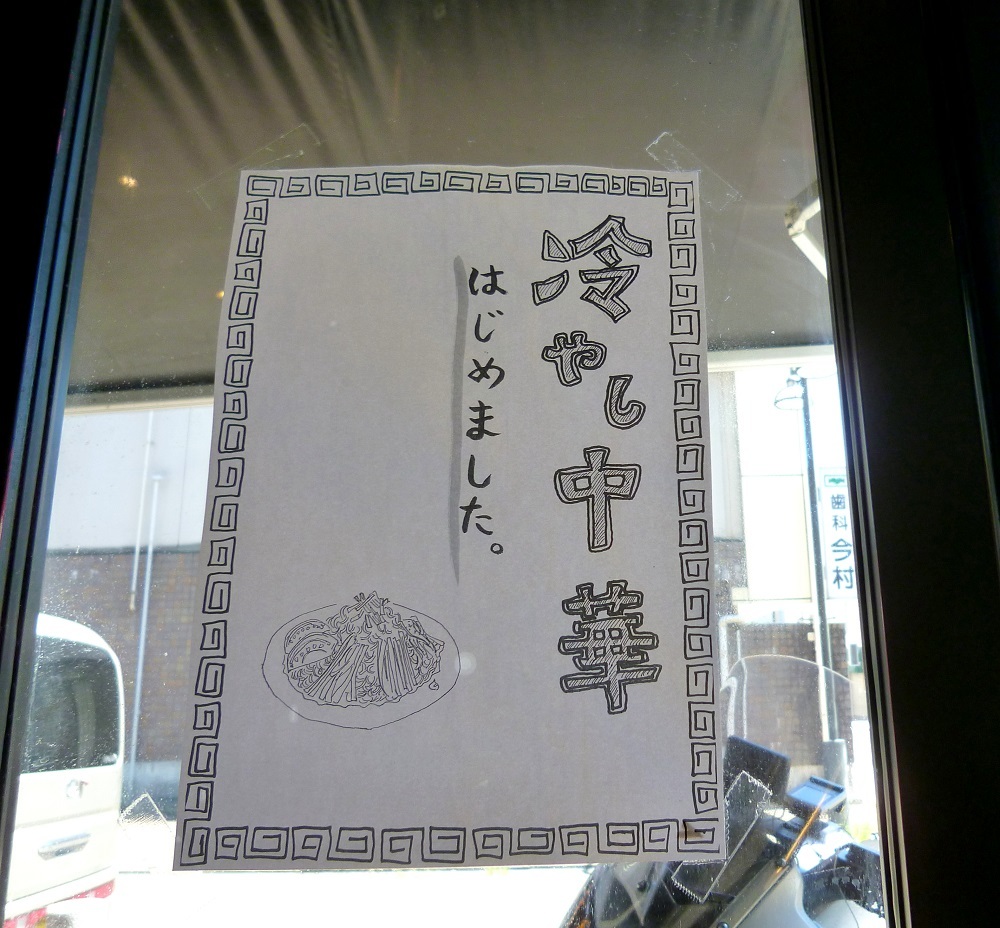 冷やし中華
はじめました。
歯科今村